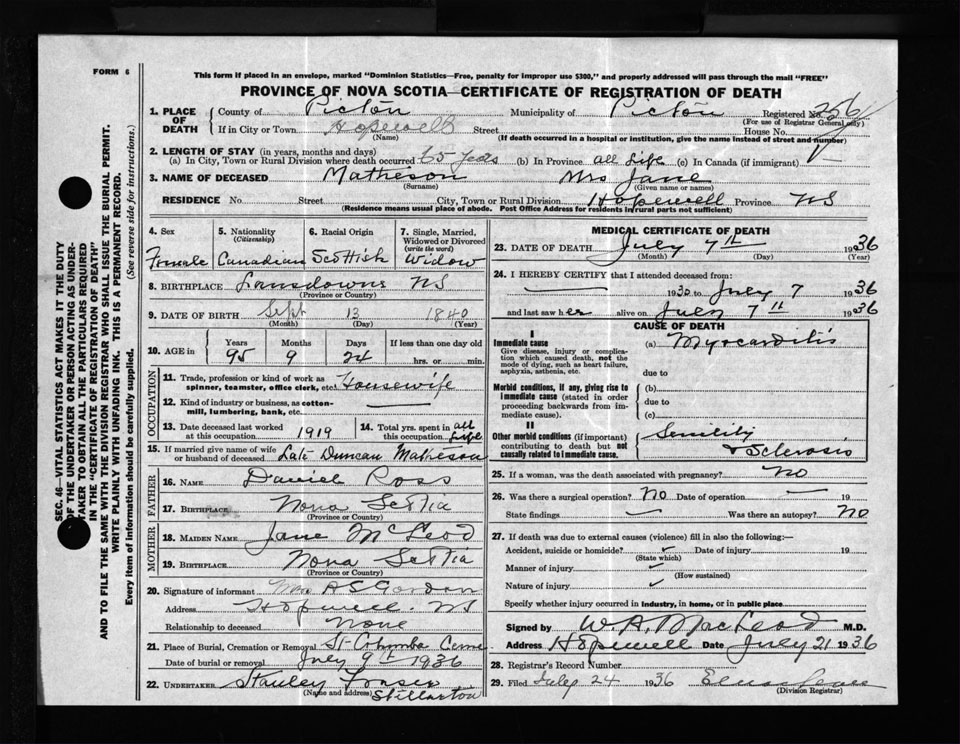 FORM 6
This form if placed in an envelope, marked "Dominion Statistics—Free, penalty for improper use $300," and properly addressed will pass through the mail "FREE"
PROVINCE OF NOVA SCOTIA—CERTIFICATE OF REGISTRATION OF DEATH
1. PLACE OF DEATH County of Pictou Municipality of Pictou Registered No. 256
(For use of Registrar General only)
If in City or Town Hopewell Street House No.
(Name) (If death occurred in a hospital or institution, give the name instead of street and number)
2. LENGTH OF STAY (in years, months and days)
(a) In City, Town or Rural Division where death occurred 65 years (b) In Province all life (c) In Canada (if immigrant)
3. NAME OF DECEASED Matheson Mrs Jane
(Surname) (Given name or names)
RESIDENCE No. Street City, Town or Rural Division Hopewell Province NS
(Residence means usual place of abode. Post Office Address for residents in rural parts not sufficient)
4. Sex 5. Nationality (Citizenship) 6. Racial Origin 7. Single, Married, Widowed or Divorced (write the word)
Female Canadian Scottish Widow
8. BIRTHPLACE Lansdowne NS
(Province or Country)
9. DATE OF BIRTH Sept 13 1840
(Month) (Day) (Year)
10. AGE in Years Months Days If less than one day old
95 9 24 hrs. or min.
OCCUPATION
11. Trade, profession or kind of work as spinner, teamster, office clerk, etc. Housewife
12. Kind of industry or business, as cotton-mill, lumbering, bank, etc. —
13. Date deceased last worked at this occupation 1919
14. Total yrs. spent in this occupation all life
15. If married give name of wife or husband of deceased Late Duncan Matheson
FATHER
16. NAME Daniel Ross
17. BIRTHPLACE Nova Scotia
(Province or Country)
MOTHER
18. MAIDEN NAME Jane McLeod
19. BIRTHPLACE Nova Scotia
(Province or Country)
20. Signature of informant Mrs A S Gordon
Address Hopewell NS
Relationship to deceased None
21. Place of Burial, Cremation or Removal St Columba Ceme
Date of burial or removal July 9th 1936
22. UNDERTAKER Stanley Fraser
(Name and Address) Stellarton
MEDICAL CERTIFICATE OF DEATH
23. DATE OF DEATH July 7th 1936
(Month) (Day) (Year)
24. I HEREBY CERTIFY that I attended deceased from:
— 1930 to July 7 1936
and last saw her alive on July 7th 1936
CAUSE OF DEATH
I
Immediate cause
Give disease, injury or complication which caused death, not the mode of dying, such as heart failure, asphyxia, asthenia, etc.
(a) Myocarditis
due to
Morbid conditions, if any, giving rise to immediate cause (stated in order proceeding backwards from immediate cause).
(b)
due to
(c)
II
Other morbid conditions (if important) contributing to death but not causally related to immediate cause.
Senility
& Sclerosis
25. If a woman, was the death associated with pregnancy? No
26. Was there a surgical operation? No Date of operation — 19
State findings — Was there an autopsy? No
27. If death was due to external causes (violence) fill in also the following:—
Accident, suicide or homicide? Date of injury 19
(State which)
Manner of injury
(How sustained)
Nature of injury
Specify whether injury occurred in industry, in home, or in public place
Signed by W. A. MacLeod M.D.
Address Hopewell Date July 21 1936
28. Registrar's Record Number
29. Filed July 24 1936
(Division Registrar)
SEC. 46—VITAL STATISTICS ACT MAKES IT THE DUTY
OF THE UNDERTAKER OR PERSON ACTING AS UNDERTAKER
TO OBTAIN ALL THE PARTICULARS REQUIRED
IN THE "CERTIFICATE OF REGISTRATION OF DEATH"
AND TO FILE THE SAME WITH THE DIVISION REGISTRAR WHO SHALL ISSUE THE BURIAL PERMIT.
WRITE PLAINLY WITH UNFADING INK. THIS IS A PERMANENT RECORD.
Every item of information should be carefully supplied. (See reverse side for instructions.)